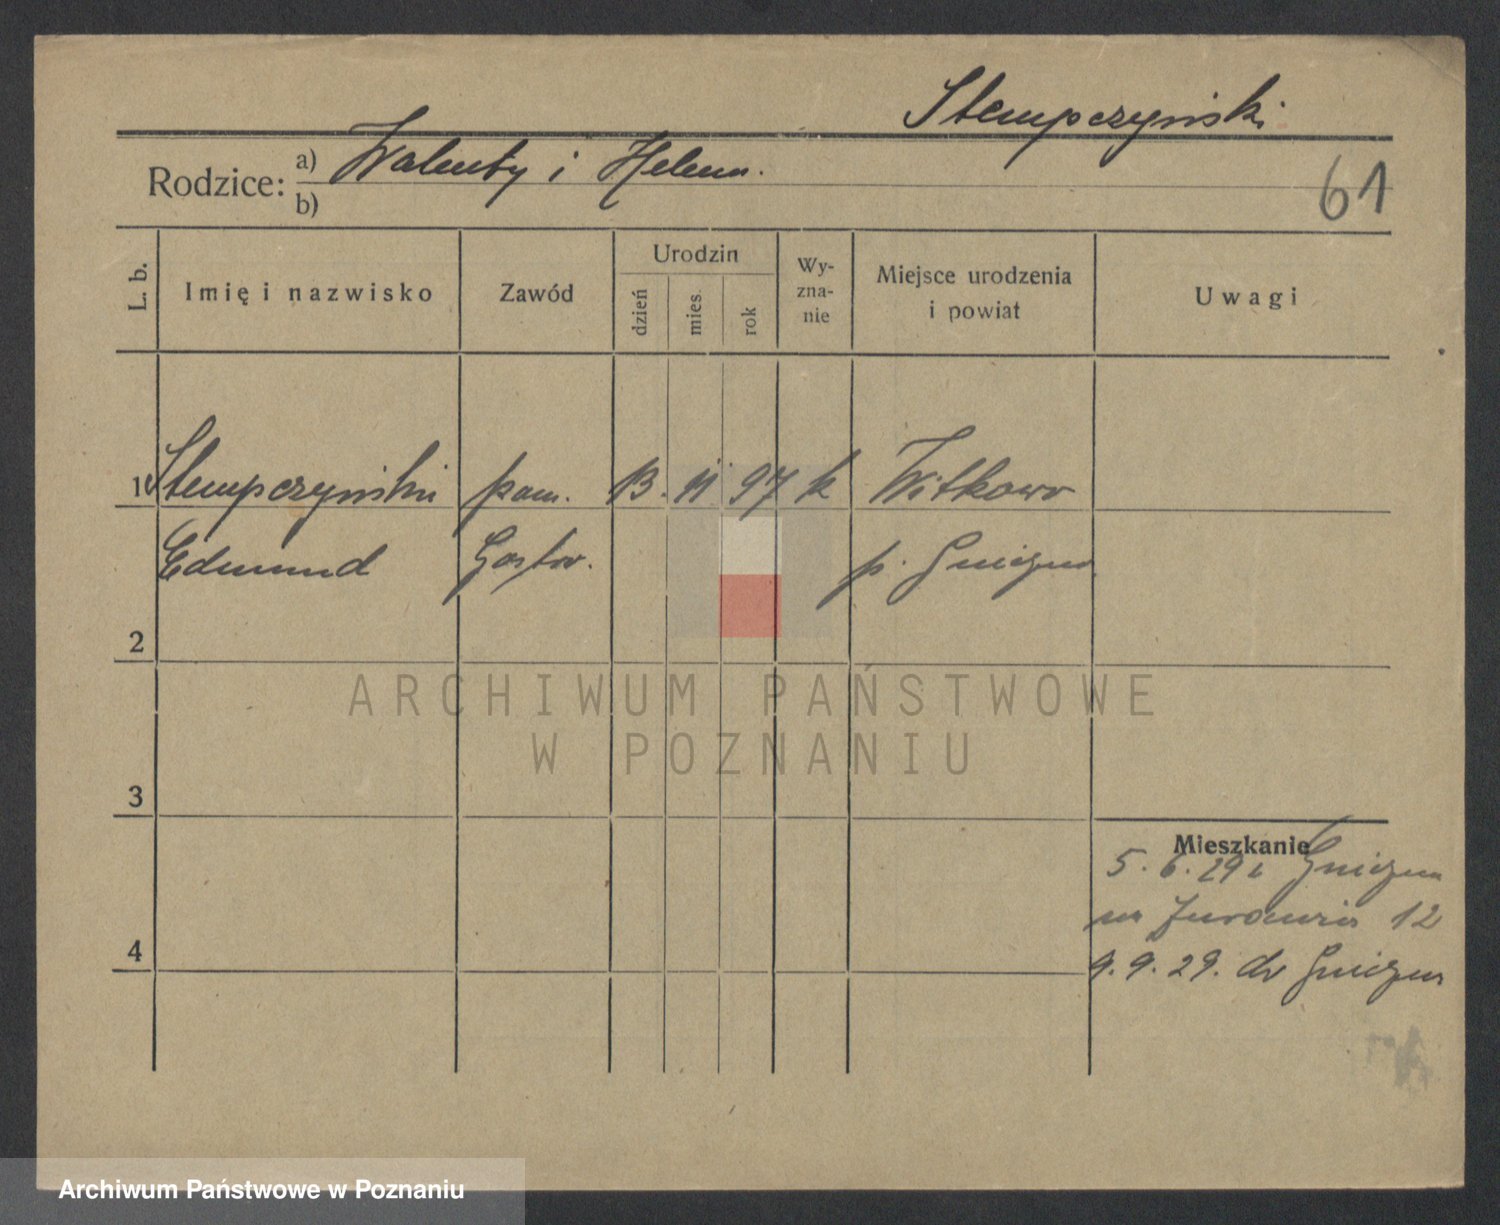 Stempczyński
Rodzice: a) Walenty i Helena.
b)
61
L. b.
Imię i nazwisko
Zawód
Urodzin
dzień
mies.
rok
Wy-
zna-
nie
Miejsce urodzenia
i powiat
Uwagi
1 Stempczyński pom. 13. 11 97 k Witkowo
Edmund Gosp. p. Gniezno
2
ARCHIWUM PAŃSTWOWE
W POZNANIU
3
Mieszkanie
5. 6. 29 z Gniezna
12
4
9. 9. 29. do Gniezna
Archiwum Państwowe w Poznaniu